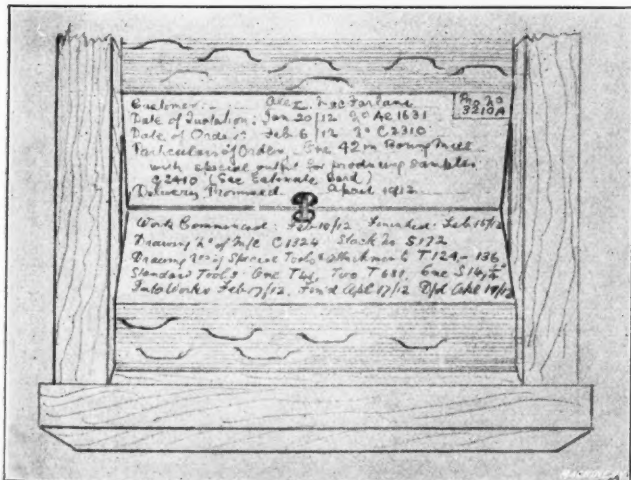 Customer: Alex MacFarlane
Pro. No
3210A
Date of Quotation: Jan 20/12 No AE 1631
Date of Order: Feb 6/12 No C 2310
Particulars of Order. One 42 in Boring Mill
with special outfit for producing samples
C2410 (See Estimate Card)
Delivery Promised April 19/12
Work Commenced: Feb 10/12 Finished: Feb 16/12
Drawing No of M/c C 1324 Stock No S172
Drawing Nos of Special Tools & attachments T 124 - 136
Standard Tools: One T 44, Two T 681, One
Into Works Feb 17/12, Fin'd Apl 17/12 Apl 19/12
MACHINERY